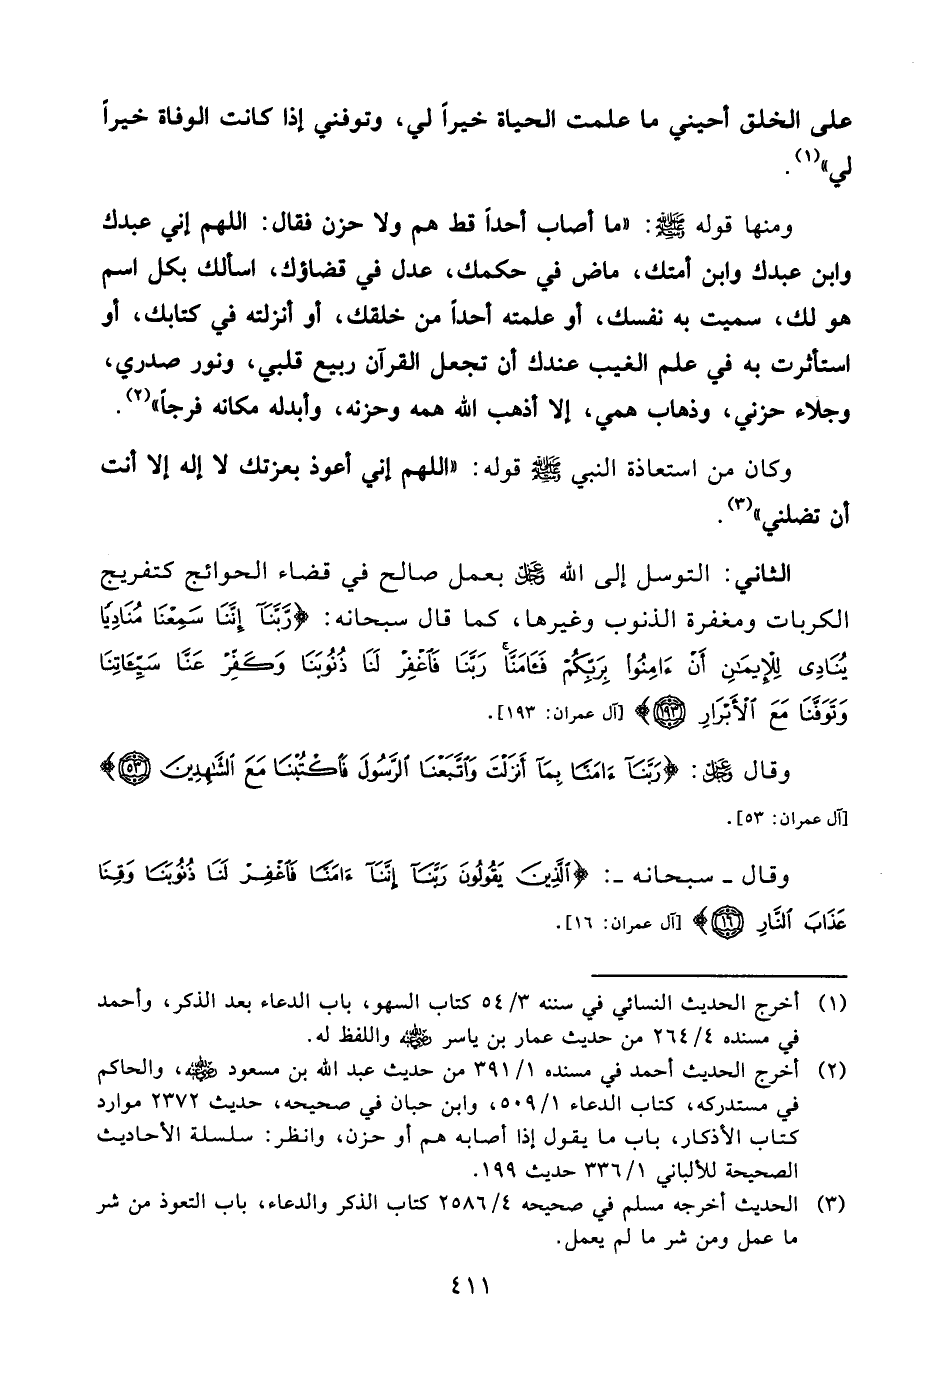 على الخلق أحيني ما علمت الحياة خيراً لي، وتوفني إذا كانت الوفاة خيراً
لي»(١).
ومنها قوله ﷺ: «ما أصاب أحداً قط هم ولا حزن فقال: اللهم إني عبدك
وابن عبدك وابن أمتك، ماض في حكمك، عدل في قضاؤك، اسألك بكل اسم
هو لك، سميت به نفسك، أو علمته أحداً من خلقك، أو أنزلته في كتابك، أو
استأثرت به في علم الغيب عندك أن تجعل القرآن ربيع قلبي، ونور صدري،
وجلاء حزني، وذهاب همي، إلا أذهب الله همه وحزنه، وأبدله مكانه فرجاً»(٢).
وكان من استعاذة النبي ﷺ قوله: «اللهم إني أعوذ بعزتك لا إله إلا أنت
أن تضلني»(٣).
الثاني: التوسل إلى الله ﷻ بعمل صالح في قضاء الحوائج كتفريج
الكربات ومغفرة الذنوب وغيرها، كما قال سبحانه: ﴿رَّبَّنَآ إِنَّنَا سَمِعْنَا مُنَادِيًا
يُنَادِى لِلْإِيمَـٰنِ أَنْ ءَامِنُوا۟ بِرَبِّكُمْ فَـَٔامَنَّا ۚ رَبَّنَا فَٱغْفِرْ لَنَا ذُنُوبَنَا وَكَفِّرْ عَنَّا سَيِّـَٔاتِنَا
وَتَوَفَّنَا مَعَ ٱلْأَبْرَارِ ١٩٣﴾ [آل عمران: ١٩٣].
وقال ﷻ: ﴿رَبَّنَآ ءَامَنَّا بِمَآ أَنزَلْتَ وَٱتَّبَعْنَا ٱلرَّسُولَ فَٱكْتُبْنَا مَعَ ٱلشَّـٰهِدِينَ ٥٣﴾
[آل عمران: ٥٣].
وقال ـ سبحانه ـ: ﴿ٱلَّذِينَ يَقُولُونَ رَبَّنَآ إِنَّنَآ ءَامَنَّا فَٱغْفِرْ لَنَا ذُنُوبَنَا وَقِنَا
عَذَابَ ٱلنَّارِ ١٦﴾ [آل عمران: ١٦].
(١) أخرج الحديث النسائي في سننه ٥٤/٣ كتاب السهو، باب الدعاء بعد الذكر، وأحمد
في مسنده ٢٦٤/٤ من حديث عمار بن ياسر رضي الله عنه واللفظ له.
(٢) أخرج الحديث أحمد في مسنده ٣٩١/١ من حديث عبد الله بن مسعود رضي الله عنه، والحاكم
في مستدركه، كتاب الدعاء ٥٠٩/١، وابن حبان في صحيحه، حديث ٢٣٧٢ موارد
كتاب الأذكار، باب ما يقول إذا أصابه هم أو حزن، وانظر: سلسلة الأحاديث
الصحيحة للألباني ٣٣٦/١ حديث ١٩٩.
(٣) الحديث أخرجه مسلم في صحيحه ٢٥٨٦/٤ كتاب الذكر والدعاء، باب التعوذ من شر
ما عمل ومن شر ما لم يعمل.
٤١١